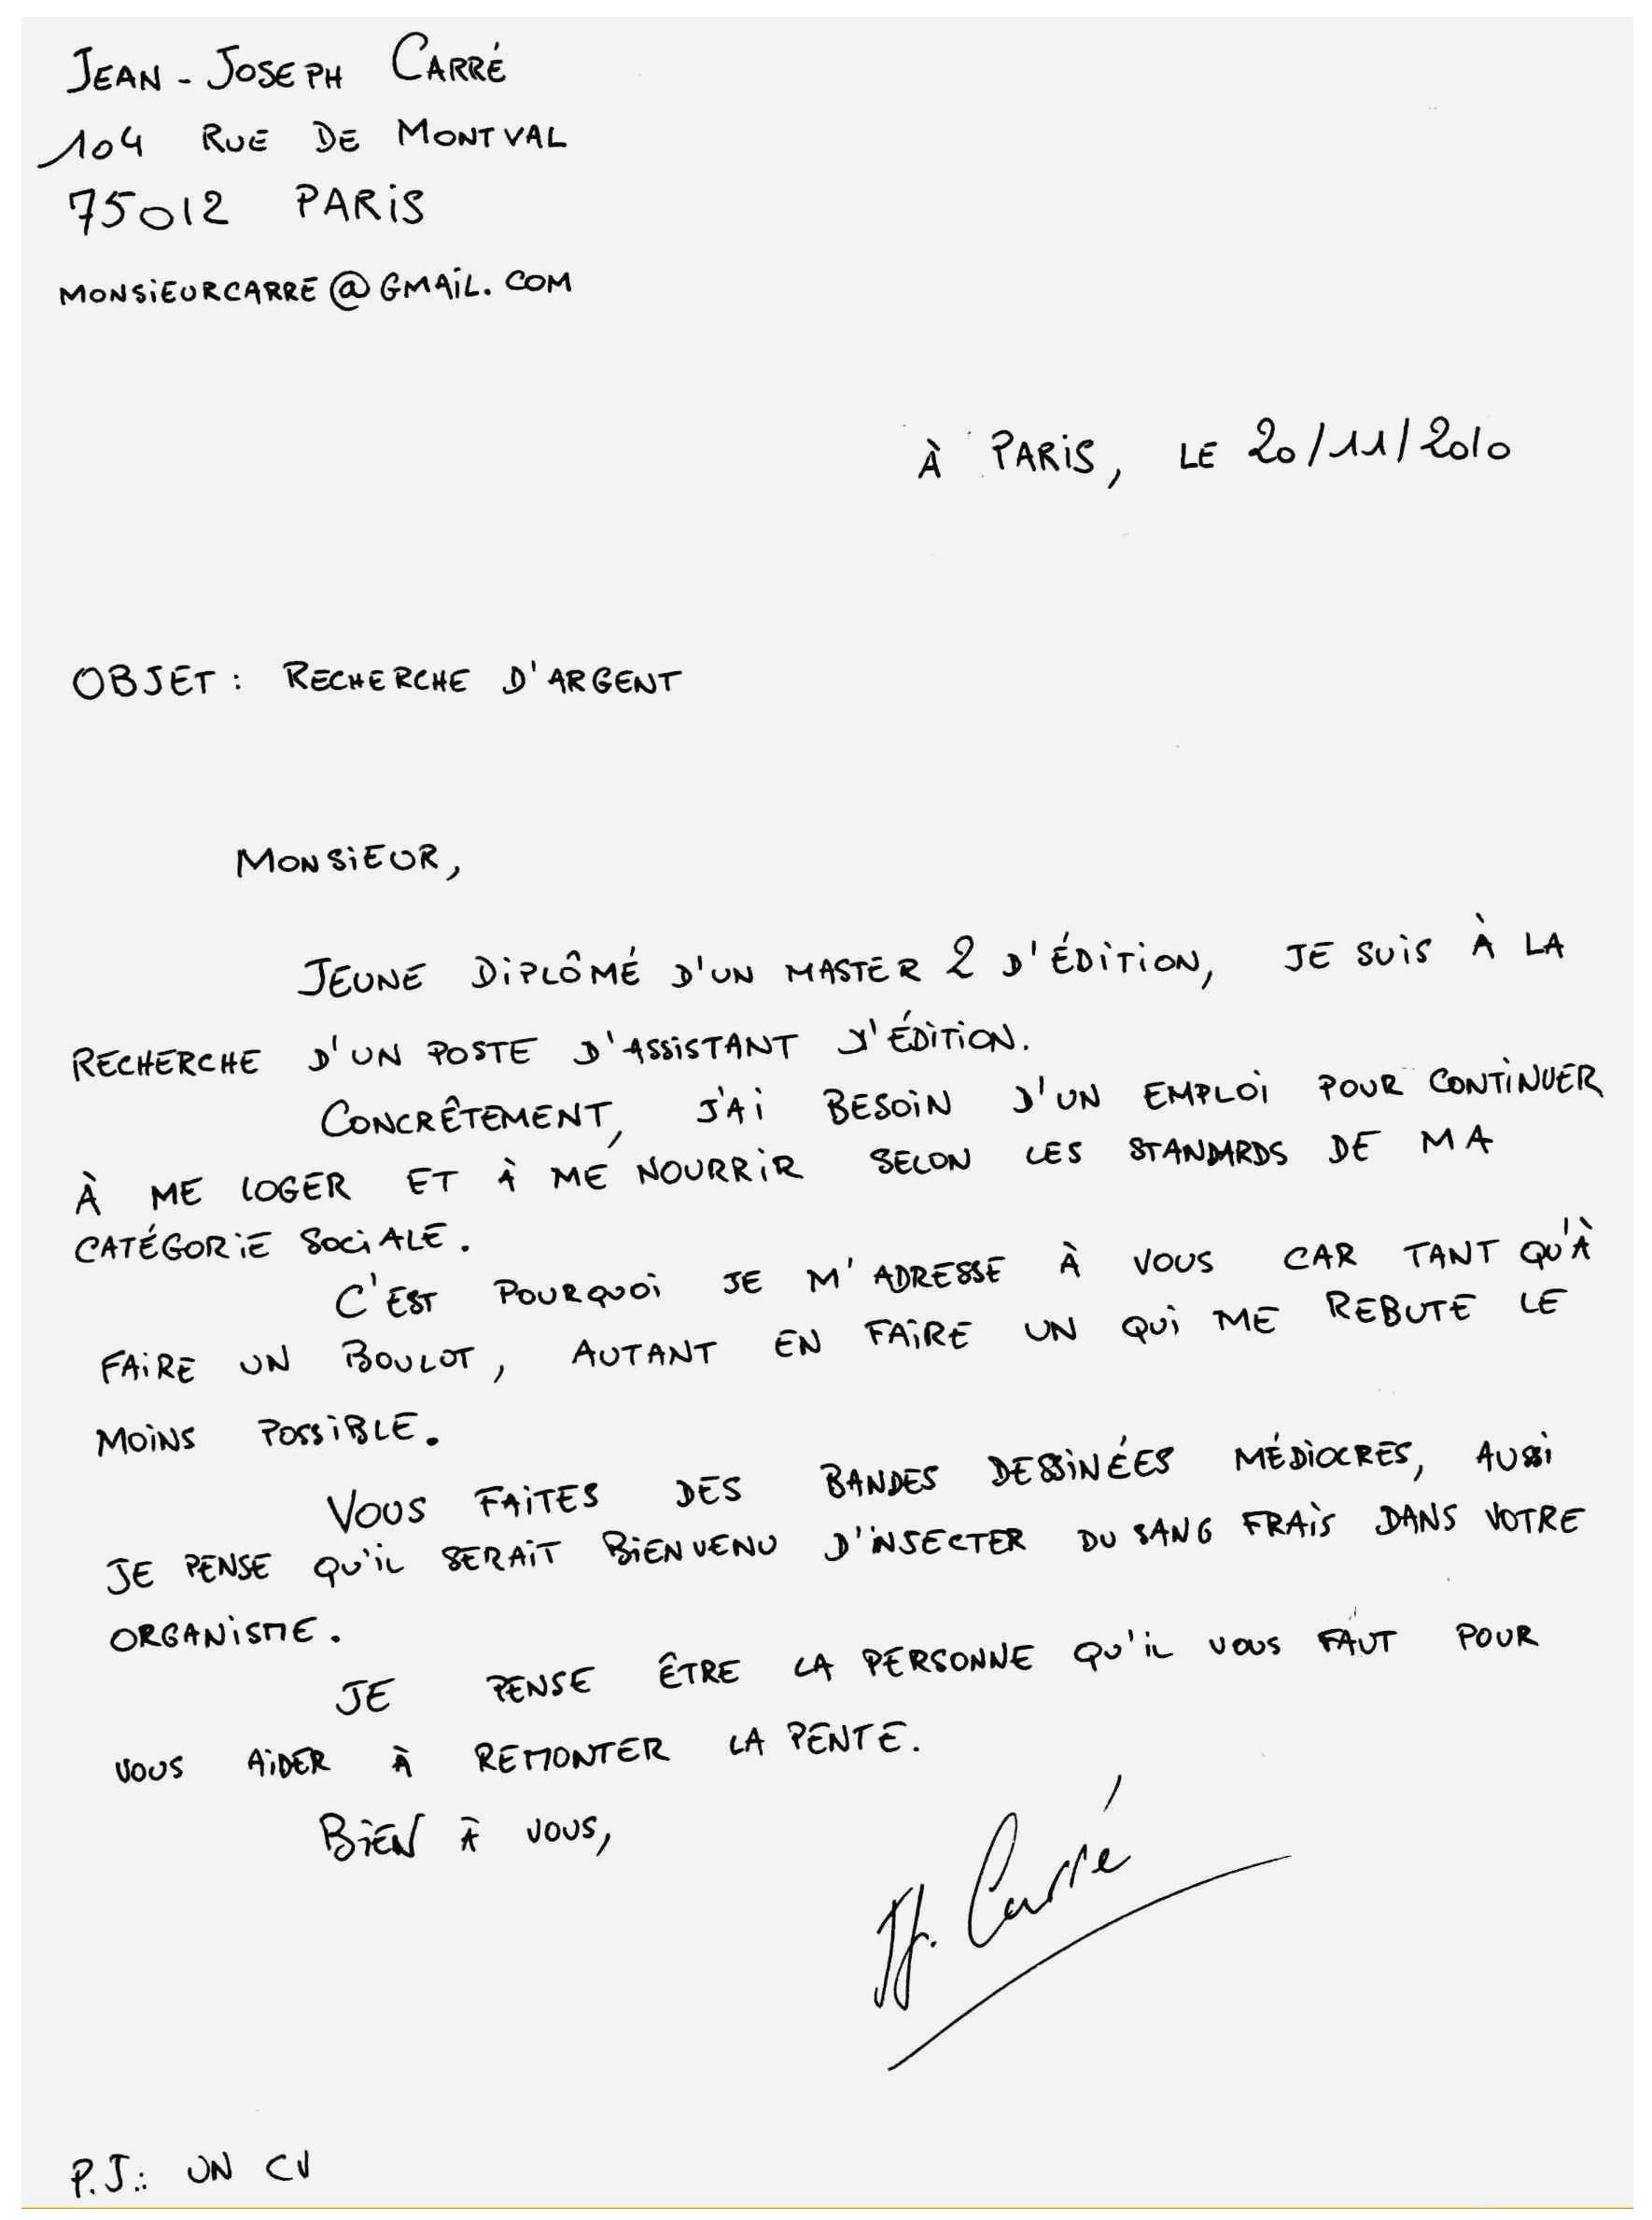 JEAN-JOSEPH CARRÉ
104 RUE DE MONTVAL
75012 PARIS
MONSIEURCARRE@GMAIL.COM
À PARIS, LE 20/11/2010
OBJET : RECHERCHE D'ARGENT
MONSIEUR,
JEUNE DIPLÔMÉ D'UN MASTER 2 D'ÉDITION, JE SUIS À LA
RECHERCHE D'UN POSTE D'ASSISTANT D'ÉDITION.
CONCRÊTEMENT, J'AI BESOIN D'UN EMPLOI POUR CONTINUER
À ME LOGER ET À ME NOURRIR SELON LES STANDARDS DE MA
CATÉGORIE SOCIALE.
C'EST POURQUOI JE M'ADRESSE À VOUS CAR TANT QU'À
FAIRE UN BOULOT, AUTANT EN FAIRE UN QUI ME REBUTE LE
MOINS POSSIBLE.
VOUS FAITES DES BANDES DESSINÉES MÉDIOCRES, AUSSI
JE PENSE QU'IL SERAIT BIENVENU D'INJECTER DU SANG FRAIS DANS VOTRE
ORGANISME.
JE PENSE ÊTRE LA PERSONNE QU'IL VOUS FAUT POUR
VOUS AIDER À REMONTER LA PENTE.
BIEN À VOUS,
JJ. Carré
P.J.: UN CV